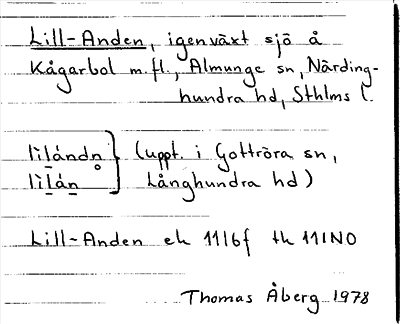 Lill-Anden, igenväxt sjö å
Kågarbol m.fl., Almunge sn, Närding-
hundra hd, Sthlms l.
lìlándn̥ } (uppt. i Gottröra sn,
lìlán } Långhundra hd)
Lill-Anden ek 11I6f tk 111NO
Thomas Åberg 1978